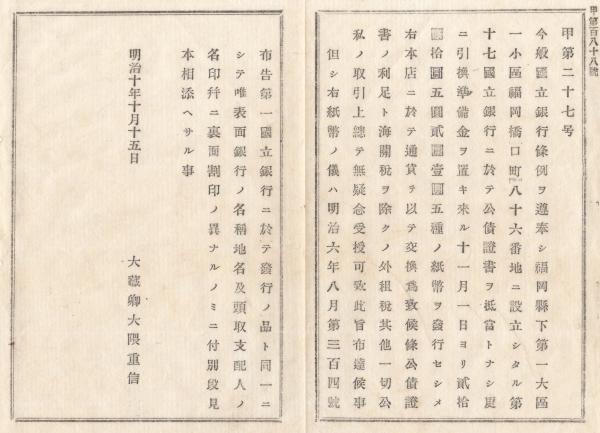 甲第百八十八號
甲第二十七号
今般國立銀行條例ヲ遵奉シ福岡縣下第一大區
一小區福岡橋口町八十六番地ニ設立シタル第
十七國立銀行ニ於テ公債證書ヲ抵當トナシ更
ニ引換準備金ヲ置キ來ル十一月一日ヨリ貳拾
圓拾圓五圓貳圓壹圓五種ノ紙幣ヲ發行セシメ
右本店ニ於テ通貨ヲ以テ交換爲致候條公債證
書ノ利足ト海關稅ヲ除クノ外租稅其他一切公
私ノ取引上總テ無疑念受授可致此旨布達候事
但シ右紙幣ノ儀ハ明治六年八月第三百四號
布告第一國立銀行ニ於テ發行ノ品ト同一ニ
シテ唯表面銀行ノ名稱地名及頭取支配人ノ
名印幷ニ裏面割印ノ異ナルノミニ付別段見
本相添ヘサル事
明治十年十月十五日
大藏卿大隈重信